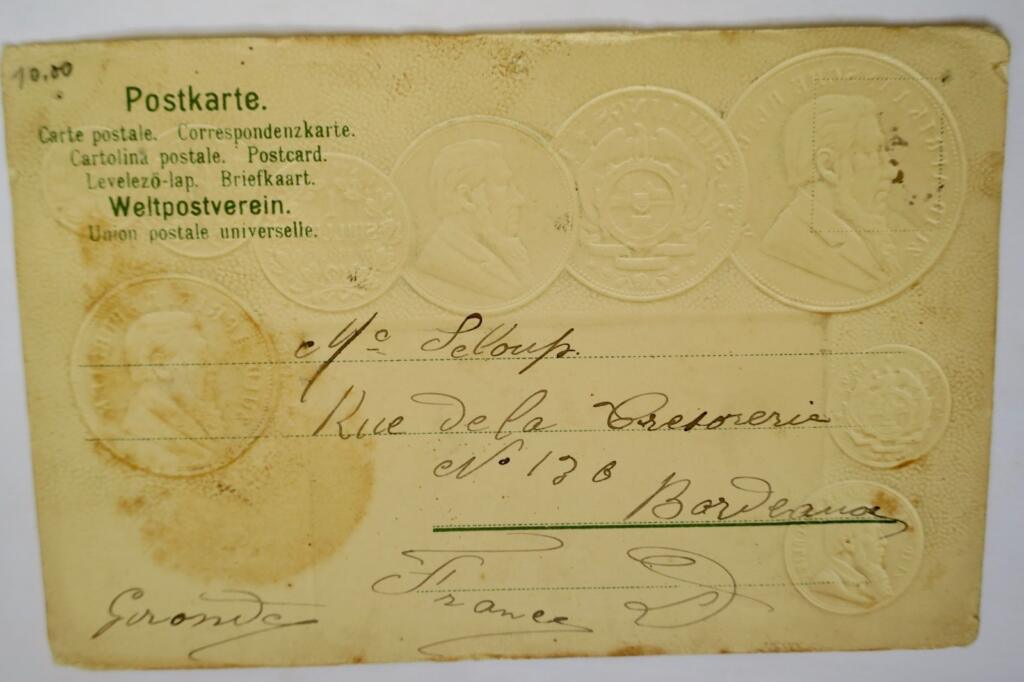 10.00
Postkarte.
Carte postale. Correspondenzkarte.
Cartolina postale. Postcard.
Levelező-lap. Briefkaart.
Weltpostverein.
Union postale universelle.
Mc Selloup.
Rue de la Tresorerie
No 136
Bordeaux
France
Gironde